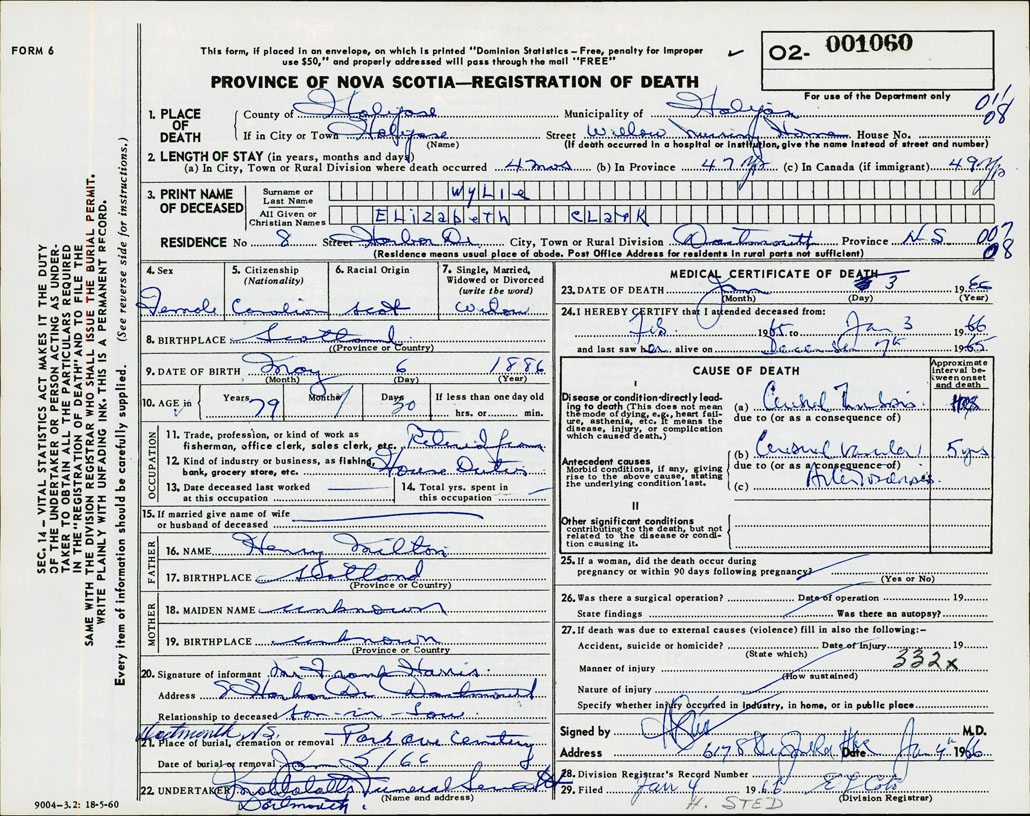 FORM 6
This form, if placed in an envelope, on which is printed "Dominion Statistics – Free, penalty for improper
use $50," and properly addressed will pass through the mail "FREE"
PROVINCE OF NOVA SCOTIA—REGISTRATION OF DEATH
O2- 001060
For use of the Department only
011
08
1. PLACE OF DEATH
County of Halifax Municipality of Halifax
If in City or Town Halifax Street Willow Nursing Home House No.
(Name) (If death occurred in a hospital or institution, give the name instead of street and number)
2. LENGTH OF STAY (in years, months and days)
(a) In City, Town or Rural Division where death occurred 4 mos (b) In Province 47 yr (c) In Canada (if immigrant) 49 yr
3. PRINT NAME OF DECEASED
Surname or Last Name WYLIE
All Given or Christian Names ELIZABETH CLARK
RESIDENCE No 8 Street Harbor Dr. City, Town or Rural Division Dartmouth Province N S
007
08
(Residence means usual place of abode. Post Office Address for residents in rural parts not sufficient)
4. Sex
Female
5. Citizenship
(Nationality)
Canadian
6. Racial Origin
Scot
7. Single, Married,
Widowed or Divorced
(write the word)
Widow
8. BIRTHPLACE Scotland
(Province or Country)
9. DATE OF BIRTH May 6 1886
(Month) (Day) (Year)
10. AGE in Years 79 Months 7 Days 30 If less than one day old
hrs. or min.
OCCUPATION
11. Trade, profession, or kind of work as
fisherman, office clerk, sales clerk, etc. Retired from
12. Kind of industry or business, as fishing,
bank, grocery store, etc. House Duties
13. Date deceased last worked
at this occupation
14. Total yrs. spent in
this occupation
15. If married give name of wife
or husband of deceased
FATHER
16. NAME Henry Milton
17. BIRTHPLACE Scotland
(Province or Country)
MOTHER
18. MAIDEN NAME unknown
19. BIRTHPLACE unknown
(Province or Country)
20. Signature of informant Mr Frank Harris
Address 8 Harbor Dr Dartmouth
Relationship to deceased Son-in-Law
Dartmouth, N.S.
21. Place of burial, cremation or removal Cemetery
Date of burial or removal Jan 5/66
22. UNDERTAKER Funeral Service
(Name and address)
Dartmouth.
MEDICAL CERTIFICATE OF DEATH
23. DATE OF DEATH Jan 3 1966
(Month) (Day) (Year)
24. I HEREBY CERTIFY that I attended deceased from:
Feb. 1965 to Jan 3 1966
and last saw her alive on December 7th 1965
CAUSE OF DEATH
Approximate
interval be-
tween onset
and death
I
Disease or condition directly lead-
ing to death (This does not mean
the mode of dying, e.g., heart fail-
ure, asthenia, etc. It means the
disease, injury, or complication
which caused death.)
(a) Cerebral Thrombosis
due to (or as a consequence of)
Antecedent causes
Morbid conditions, if any, giving
rise to the above cause, stating
the underlying condition last.
(b) Cerebral Vascular 5 yrs
due to (or as a consequence of)
(c) Arteriosclerosis.
II
Other significant conditions
contributing to the death, but not
related to the disease or condi-
tion causing it.
25. If a woman, did the death occur during
pregnancy or within 90 days following pregnancy?
(Yes or No)
26. Was there a surgical operation? Date of operation 19
State findings Was there an autopsy?
27. If death was due to external causes (violence) fill in also the following:–
Accident, suicide or homicide? Date of injury 19
(State which)
332x
Manner of injury
(How sustained)
Nature of injury
Specify whether injury occurred in industry, in home, or in public place
Signed by M.D.
Address 6178 Hfx Jan 4th 1966
28. Division Registrar's Record Number
29. Filed Jan 4 1966
(Division Registrar)
H. STED
9004–3.2: 18-5-60
SEC. 14 – VITAL STATISTICS ACT MAKES IT THE DUTY
OF THE UNDERTAKER OR PERSON ACTING AS UNDER-
TAKER TO OBTAIN ALL THE PARTICULARS REQUIRED
IN THE "REGISTRATION OF DEATH" AND TO FILE THE
SAME WITH THE DIVISION REGISTRAR WHO SHALL ISSUE THE BURIAL PERMIT.
WRITE PLAINLY WITH UNFADING INK. THIS IS A PERMANENT RECORD.
Every item of information should be carefully supplied. (See reverse side for instructions.)